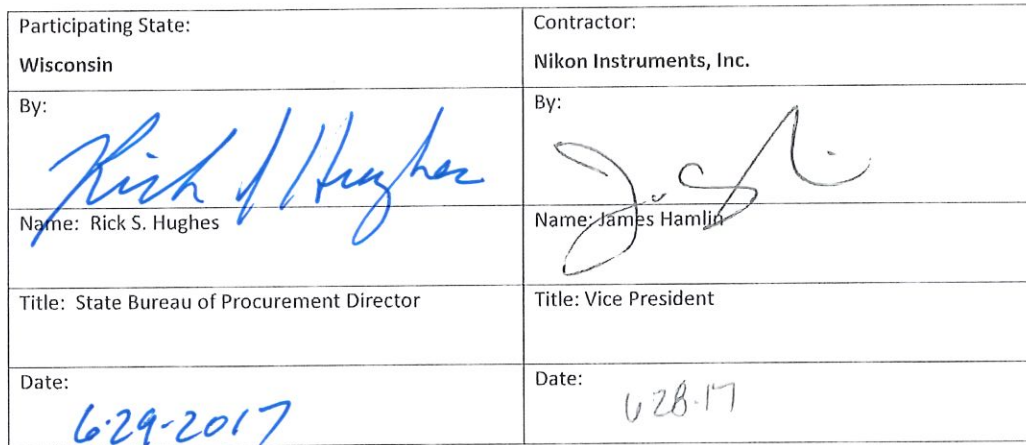 Participating State:
Wisconsin
Contractor:
Nikon Instruments, Inc.
By:
Rick S Hughes
By:
Name: Rick S. Hughes
Name: James Hamlin
Title: State Bureau of Procurement Director
Title: Vice President
Date:
6-29-2017
Date:
6 28-17